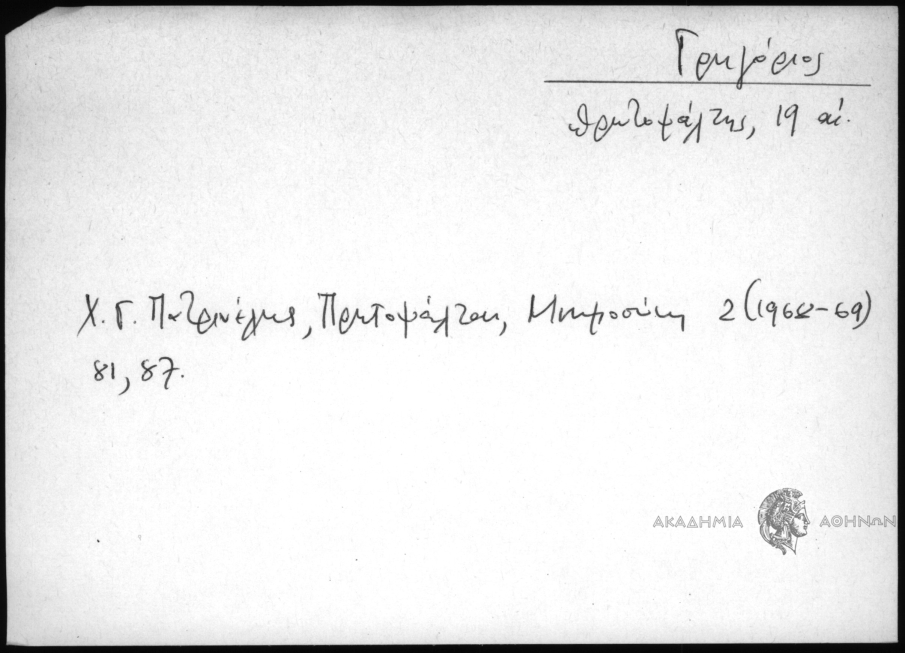 Γρηγόριος
πρωτοψάλτης, 19 αἰ.
Χ. Γ. Πατρινέλης, Πρωτοψάλται, Μνημοσύνη 2 (1968-69)
81, 87.
ΑΚΑΔΗΜΙΑ ΑΘΗΝΩΝ